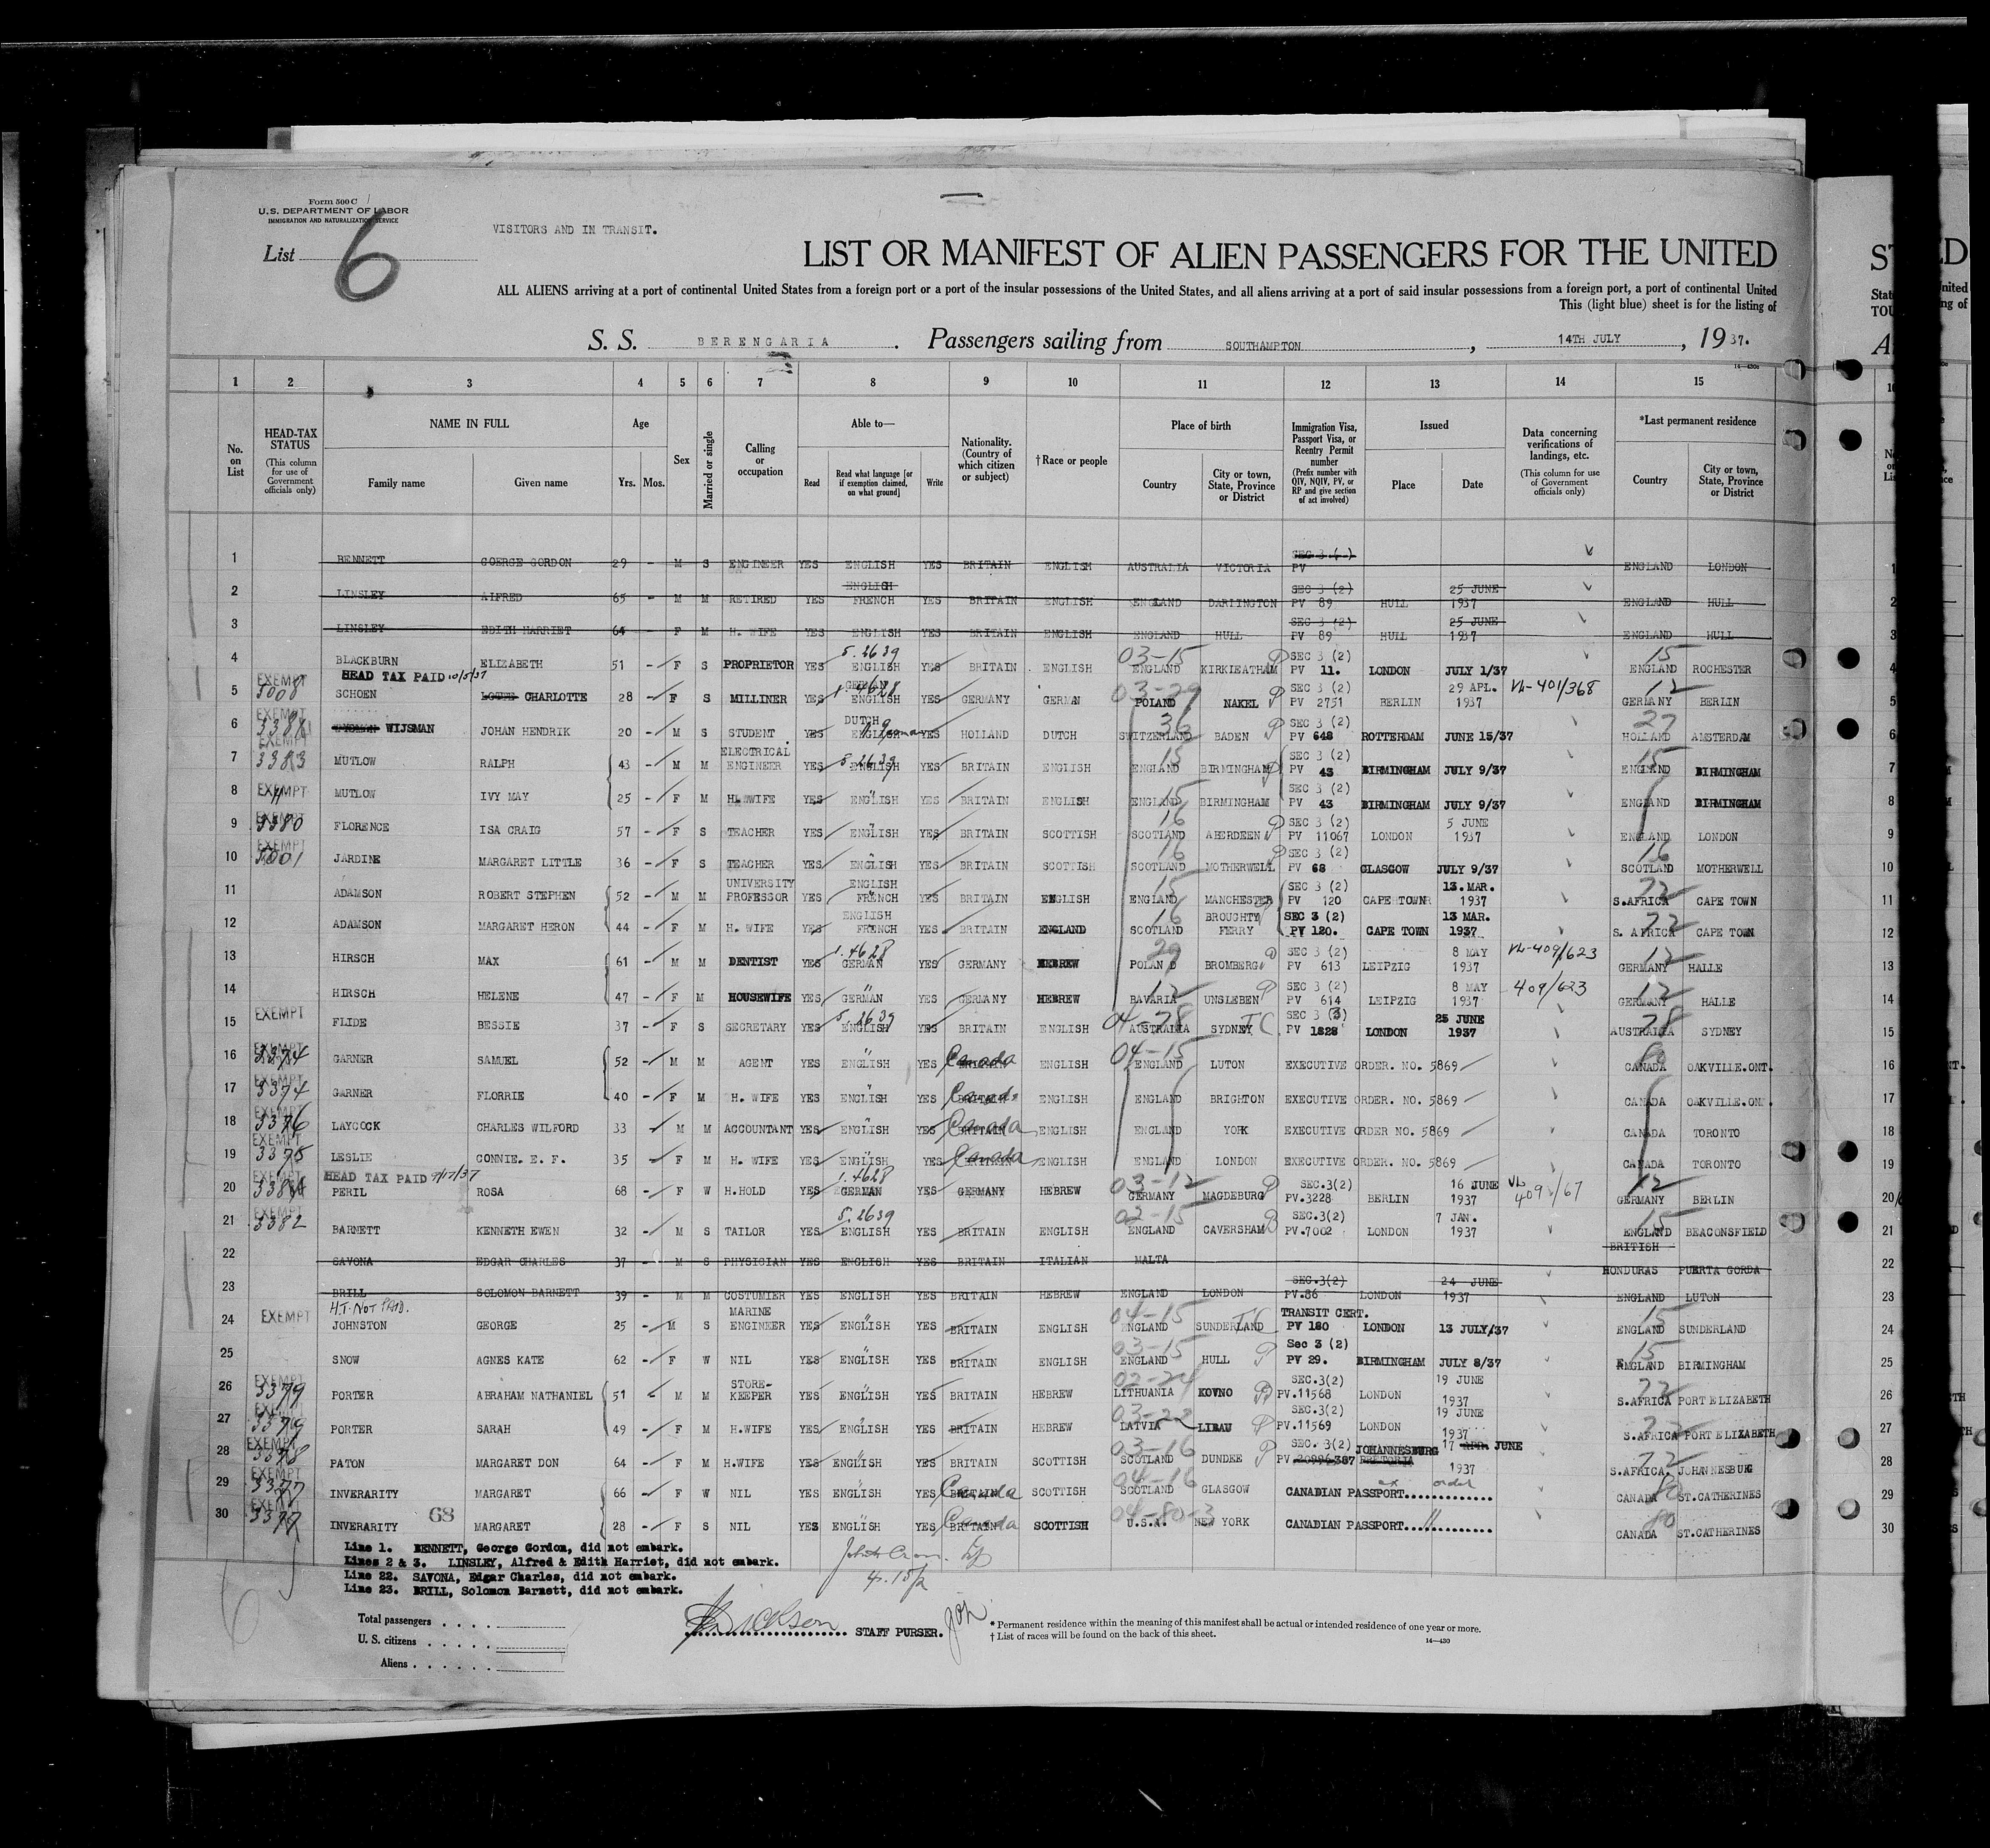 Form 500 C
U.S. DEPARTMENT OF LABOR
IMMIGRATION AND NATURALIZATION SERVICE
List 6
VISITORS AND IN TRANSIT.
LIST OR MANIFEST OF ALIEN PASSENGERS FOR THE UNITED
ALL ALIENS arriving at a port of continental United States from a foreign port or a port of the insular possessions of the United States, and all aliens arriving at a port of said insular possessions from a foreign port, a port of continental United
This (light blue) sheet is for the listing of
S. S. BERENGARIA. Passengers sailing from SOUTHAMPTON, 14TH JULY, 1937.
1 2 3 4 5 6 7 8 9 10 11 12 13 14 15
No. on List
HEAD-TAX STATUS (This column for use of Government officials only)
NAME IN FULL
Family name Given name
Age
Yrs. Mos.
Sex
Married or single
Calling or occupation
Able to—
Read Read what language [or if exemption claimed, on what ground] Write
Nationality. (Country of which citizen or subject)
†Race or people
Place of birth
Country City or town, State, Province or District
Immigration Visa, Passport Visa, or Reentry Permit number (Prefix number with QIV, NQIV, PV, or RP and give section of act involved)
Issued
Place Date
Data concerning verifications of landings, etc. (This column for use of Government officials only)
*Last permanent residence
Country City or town, State, Province or District
1 BENNETT GOERGE GORDON 29 - M S ENGINEER YES ENGLISH YES BRITAIN ENGLISH AUSTRALIA VICTORIA PV ENGLAND LONDON
2 LINSLEY ALFRED 65 - M M RETIRED YES ENGLISH FRENCH YES BRITAIN ENGLISH ENGLAND DARLINGTON SEC 3 (2) PV 89 HULL 25 JUNE 1937 ENGLAND HULL
3 LINSLEY EDITH HARRIET 64 - F M H. WIFE YES ENGLISH YES BRITAIN ENGLISH ENGLAND HULL SEC 3 (2) PV 89 HULL 25 JUNE 1937 ENGLAND HULL
4 BLACKBURN ELIZABETH 51 - F S PROPRIETOR YES 5.2639 ENGLISH YES BRITAIN ENGLISH 03-15 ENGLAND KIRKLEATHAM SEC 3 (2) PV 11. LONDON JULY 1/37 15 ENGLAND ROCHESTER
HEAD TAX PAID 10/5/37
5 EXEMPT 5008 SCHOEN CHARLOTTE 28 - F S MILLINER YES GERMAN 1.4628 ENGLISH YES GERMANY GERMAN 03-29 POLAND NAKEL SEC 3 (2) PV 2751 BERLIN 29 APL. 1937 VL-401/368 12 GERMANY BERLIN
6 EXEMPT WIJSMAN JOHAN HENDRIK 20 - M S STUDENT YES DUTCH German YES HOLLAND DUTCH 36 SWITZERLAND BADEN SEC 3 (2) PV 648 ROTTERDAM JUNE 15/37 27 HOLLAND AMSTERDAM
7 EXEMPT 3383 MUTLOW RALPH 43 - M M ELECTRICAL ENGINEER YES 5.2639 ENGLISH YES BRITAIN ENGLISH 15 ENGLAND BIRMINGHAM SEC 3 (2) PV 43 BIRMINGHAM JULY 9/37 15 ENGLAND BIRMINGHAM
8 EXEMPT " MUTLOW IVY MAY 25 - F M H. WIFE YES ENGLISH YES BRITAIN ENGLISH 15 ENGLAND BIRMINGHAM SEC 3 (2) PV 43 BIRMINGHAM JULY 9/37 ENGLAND BIRMINGHAM
9 EXEMPT 3380 FLORENCE ISA CRAIG 57 - F S TEACHER YES ENGLISH YES BRITAIN SCOTTISH 16 SCOTLAND ABERDEEN SEC 3 (2) PV 11067 LONDON 5 JUNE 1937 ENGLAND LONDON
10 EXEMPT 5001 JARDINE MARGARET LITTLE 36 - F S TEACHER YES ENGLISH YES BRITAIN SCOTTISH 16 SCOTLAND MOTHERWELL SEC 3 (2) PV 68 GLASGOW JULY 9/37 16 SCOTLAND MOTHERWELL
11 ADAMSON ROBERT STEPHEN 52 - M M UNIVERSITY PROFESSOR YES ENGLISH FRENCH YES BRITAIN ENGLISH 15 ENGLAND MANCHESTER SEC 3 (2) PV 120 CAPE TOWN 13. MAR. 1937 72 S.AFRICA CAPE TOWN
12 ADAMSON MARGARET HERON 44 - F M H. WIFE YES ENGLISH FRENCH YES BRITAIN ENGLAND 16 SCOTLAND BROUGHTY FERRY SEC 3 (2) PV 120. CAPE TOWN 13 MAR. 1937. 72 S. AFRICA CAPE TOWN
13 HIRSCH MAX 61 - M M DENTIST YES 1.4628 GERMAN YES GERMANY HEBREW 29 POLAND BROMBERG SEC 3 (2) PV 613 LEIPZIG 8 MAY 1937 VL-409/623 12 GERMANY HALLE
14 HIRSCH HELENE 47 - F M HOUSEWIFE YES " GERMAN YES GERMANY HEBREW 12 BAVARIA UNSLEBEN SEC 3 (2) PV 614 LEIPZIG 8 MAY 1937 409/623 12 GERMANY HALLE
15 EXEMPT FLIDE BESSIE 37 - F S SECRETARY YES 5.2639 ENGLISH YES BRITAIN ENGLISH 04-78 AUSTRALIA SYDNEY TC SEC 3 (3) PV 1828 LONDON 25 JUNE 1937 78 AUSTRALIA SYDNEY
16 EXEMPT 3374 GARNER SAMUEL 52 - M M AGENT YES " ENGLISH YES Canada ENGLISH 04-15 ENGLAND LUTON EXECUTIVE ORDER. NO. 5869 80 CANADA OAKVILLE.ONT.
17 EXEMPT 3374 GARNER FLORRIE 40 - F M H. WIFE YES " ENGLISH YES Canada ENGLISH ENGLAND BRIGHTON EXECUTIVE ORDER. NO. 5869 CANADA OAKVILLE.ONT.
18 EXEMPT 3376 LAYCOCK CHARLES WILFORD 33 M M ACCOUNTANT YES " ENGLISH YES Canada ENGLISH ENGLAND YORK EXECUTIVE ORDER NO. 5869 CANADA TORONTO
19 EXEMPT 3375 LESLIE CONNIE. E. F. 35 - F M H. WIFE YES " ENGLISH YES Canada ENGLISH ENGLAND LONDON EXECUTIVE ORDER. NO. 5869 CANADA TORONTO
HEAD TAX PAID 9/17/37
20 EXEMPT PERIL ROSA 68 - F W H.HOLD YES 1.4628 GERMAN YES GERMANY HEBREW 03-12 GERMANY MAGDEBURG SEC.3(2) PV.3228 BERLIN 16 JUNE 1937 VL 409/67 12 GERMANY BERLIN
21 3382 BARNETT KENNETH EWEN 32 - M S TAILOR YES 5.2639 ENGLISH YES BRITAIN ENGLISH 02-15 ENGLAND CAVERSHAM SEC.3(2) PV.7002 LONDON 7 JAN. 1937 15 ENGLAND BEACONSFIELD
22 SAVONA EDGAR CHARLES 37 - M S PHYSICIAN YES ENGLISH YES BRITAIN ITALIAN MALTA BRITISH HONDURAS PUERTA GORDA
23 BRILL SOLOMON BARNETT 39 - M M COSTUMIER YES ENGLISH YES BRITAIN HEBREW ENGLAND LONDON SEC.3(2) PV.86 LONDON 24 JUNE 1937 ENGLAND LUTON
H.T. NOT PAID.
24 EXEMPT JOHNSTON GEORGE 25 - M S MARINE ENGINEER YES " ENGLISH YES BRITAIN ENGLISH 04-15 ENGLAND SUNDERLAND TC TRANSIT CERT. PV 180 LONDON 13 JULY/37 15 ENGLAND SUNDERLAND
25 SNOW AGNES KATE 62 - F W NIL YES " ENGLISH YES BRITAIN ENGLISH 03-15 ENGLAND HULL Sec 3 (2) PV 29. BIRMINGHAM JULY 8/37 15 ENGLAND BIRMINGHAM
26 EXEMPT 3379 PORTER ABRAHAM NATHANIEL 51 - M M STORE-KEEPER YES " ENGLISH YES BRITAIN HEBREW 02-24 LITHUANIA KOVNO SEC.3(2) PV.11568 LONDON 19 JUNE 1937 72 S.AFRICA PORT ELIZABETH
27 3379 PORTER SARAH 49 - F M H.WIFE YES " ENGLISH YES BRITAIN HEBREW LATVIA LIBAU SEC.3(2) PV.11569 LONDON 19 JUNE 1937 72 S.AFRICA PORT ELIZABETH
28 EXEMPT 3378 PATON MARGARET DON 64 - F M H.WIFE YES " ENGLISH YES BRITAIN SCOTTISH 03-16 SCOTLAND DUNDEE SEC. 3(2) PV 20996 387 JOHANNESBURG PRETORIA 17 APR. JUNE 1937 72 S.AFRICA. JOHANNESBURG
29 EXEMPT 3377 INVERARITY MARGARET 66 - F W NIL YES " ENGLISH YES Canada SCOTTISH 04-16 SCOTLAND GLASGOW CANADIAN PASSPORT ex order 80 CANADA ST.CATHERINES
30 EXEMPT 3377 INVERARITY 68 MARGARET 28 - F S NIL YES " ENGLISH YES BRITAIN Canada SCOTTISH 04-80-3 U.S.A. NEW YORK CANADIAN PASSPORT " 80 CANADA ST.CATHERINES
Line 1. BENNETT, George Gordon, did not embark.
Lines 2 & 3. LINSLEY, Alfred & Edith Harriet, did not embark.
Line 22. SAVONA, Edgar Charles, did not embark.
Line 23. BRILL, Solomon Barnett, did not embark.
Total passengers
U. S. citizens
Aliens
STAFF PURSER.
* Permanent residence within the meaning of this manifest shall be actual or intended residence of one year or more.
† List of races will be found on the back of this sheet.
14—430